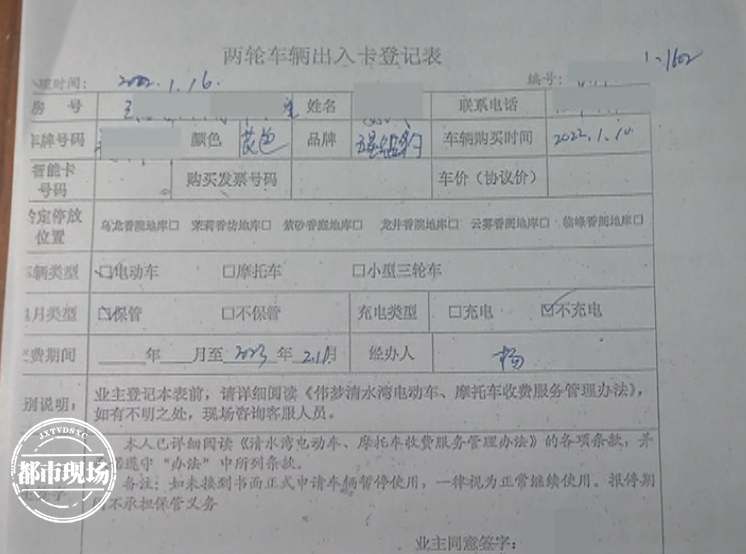 两轮车辆出入卡登记表
理时间: 2022.1.16. 编号: 1-1602
房 号 姓名 联系电话
车牌号码 颜色 品牌 车辆购买时间 2022.1.10
智能卡号码 购买发票号码 车价（协议价）
指定停放位置 乌龙香院地库□ 茉莉香坊地库□ 紫砂香庭地库□ 龙井香院地库□ 云雾香阁地库□ 临峰香阁地库□
车辆类型 □电动车 □摩托车 □小型三轮车
月类型 □保管 □不保管 充电类型 □充电 ☑不充电
费期间 ____年___月至 2023 年 2.1月 经办人 杨
别说明: 业主登记本表前，请详细阅读《伟梦清水湾电动车、摩托车收费服务管理办法》，
如有不明之处，现场咨询客服人员。
本人已详细阅读《清水湾电动车、摩托车收费服务管理办法》的各项条款，并
遵守“办法”中所列条款。
备注：如未接到书面正式申请车辆暂停使用，一律视为正常继续使用。报停期
不承担保管义务
业主同意签字：
JXTVDSXC
都市现场